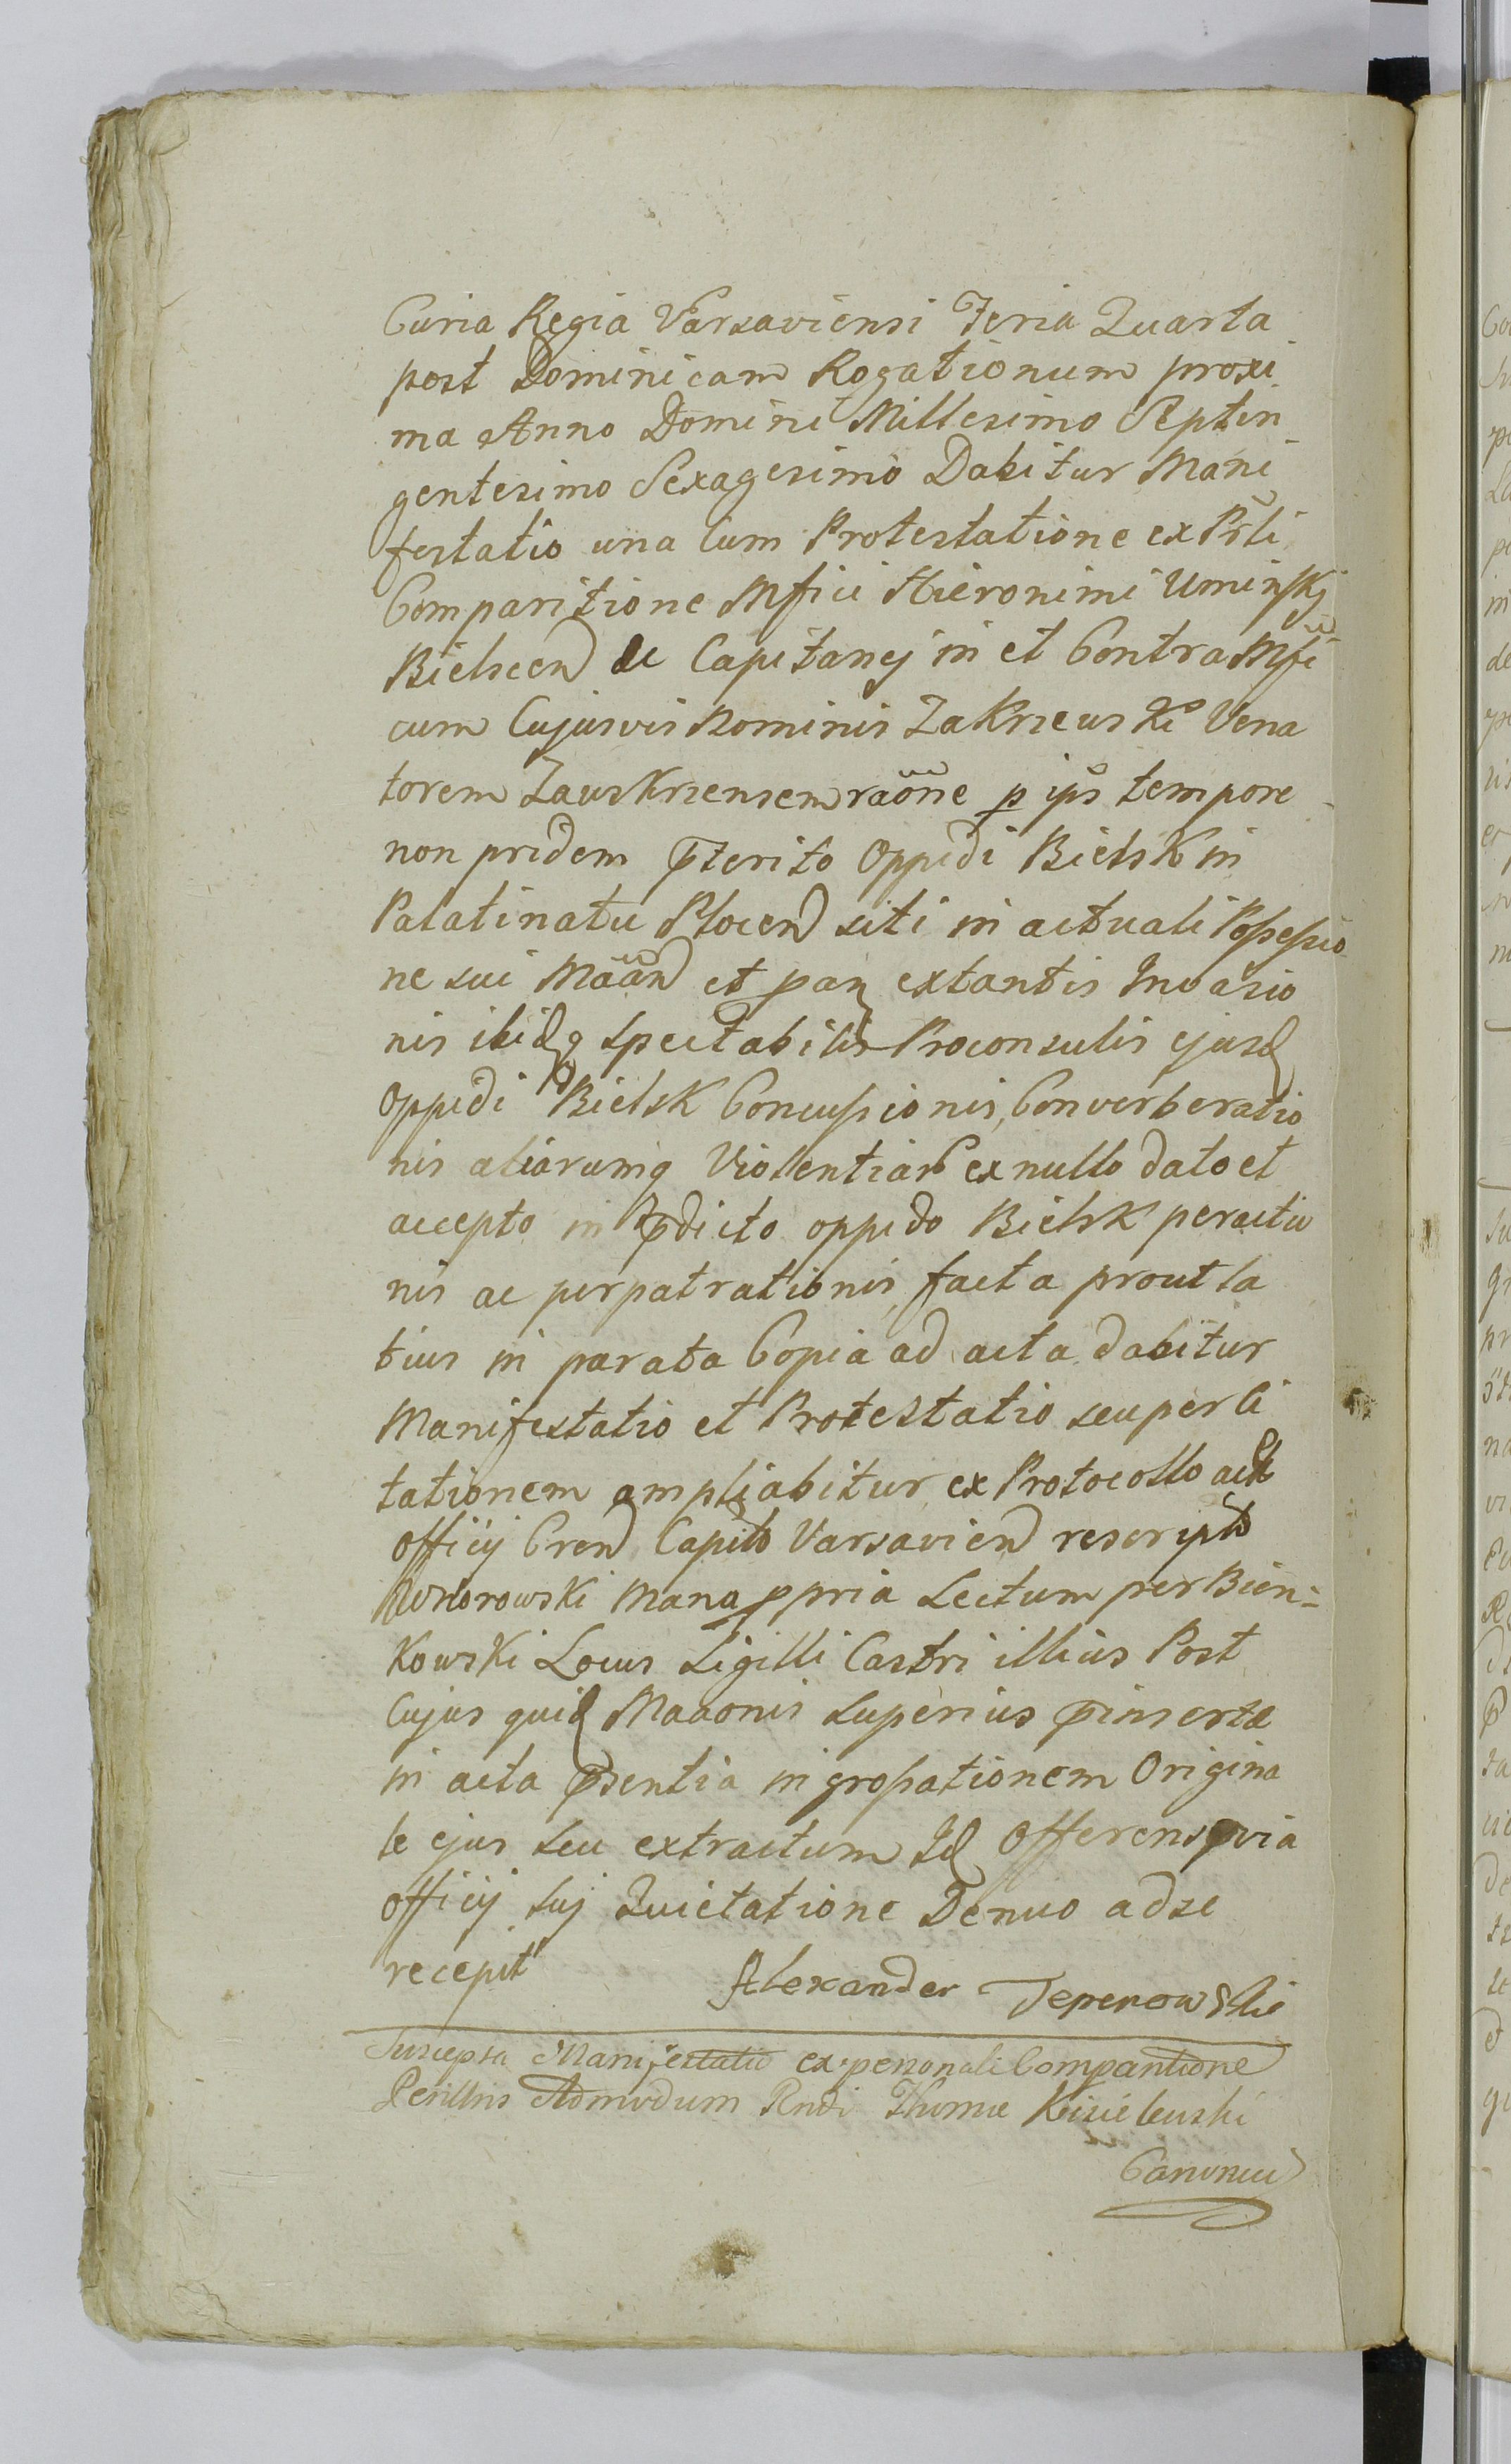 Curia Regia Varsaviensi Feria Quarta
post Dominicam Rogationum proxi
ma Anno Domini Millesimo Septin
gentesimo Sexagesimo Dabitur Mani
festatio una Cum Protestatione ex Prli
Comparitione Mfici Hieronimi Uminskj
Bielscen Capitanej in et Contra Mfi
cum Cujusvis Nominis ZaKrzewski Vena
torem ZawsKrzensem raõne p ips tempore
non pridem pterito Oppidi BielsK in
Palatinatu Plocen siti in actuali Possessio
ne sui Maan et pan extantis Invasio
nis ibidq Spectabilis Proconsulis ejusd
Oppidi BielsK Concussionis, Converberatio
nis aliarumq Violentiar ex nullo dato et
accepto in pdicto oppido BielsK peractio
nis ac perpatrationis, facta prout la
tius in parata Copia ad acta dabitur
Manifestatio et Protestatio seu per Ci
tationem ampliabitur, ex Protocollo act
Officij Cren Capit Varsavien rescript
manu ppria Lectum per Bien=
KowsKi Locus Sigilli Castri illius Post
Cujus quid Maaonis Superius pinsertæ
in acta psentia ingrossationem Origina
le ejus seu extractum Id Offerens pvia
Officij Suj Quietatione Denuo ad se
recepit Alexander
Suscepta Manifestatio ex personali Comparitione
Perillris Admodum Rndi Thomæ Kisielewski
Canonici